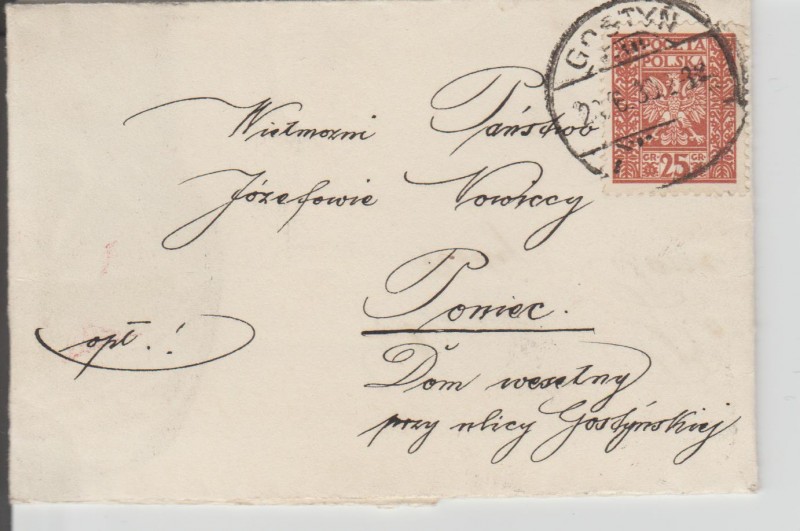 GOSTYŃ
POCZTA
POLSKA
GR 25 GR
Wielmożni Państwo
Józefowie Nowiccy
Poniec.
opł. !
Dom weselny
przy ulicy Gostyńskiej